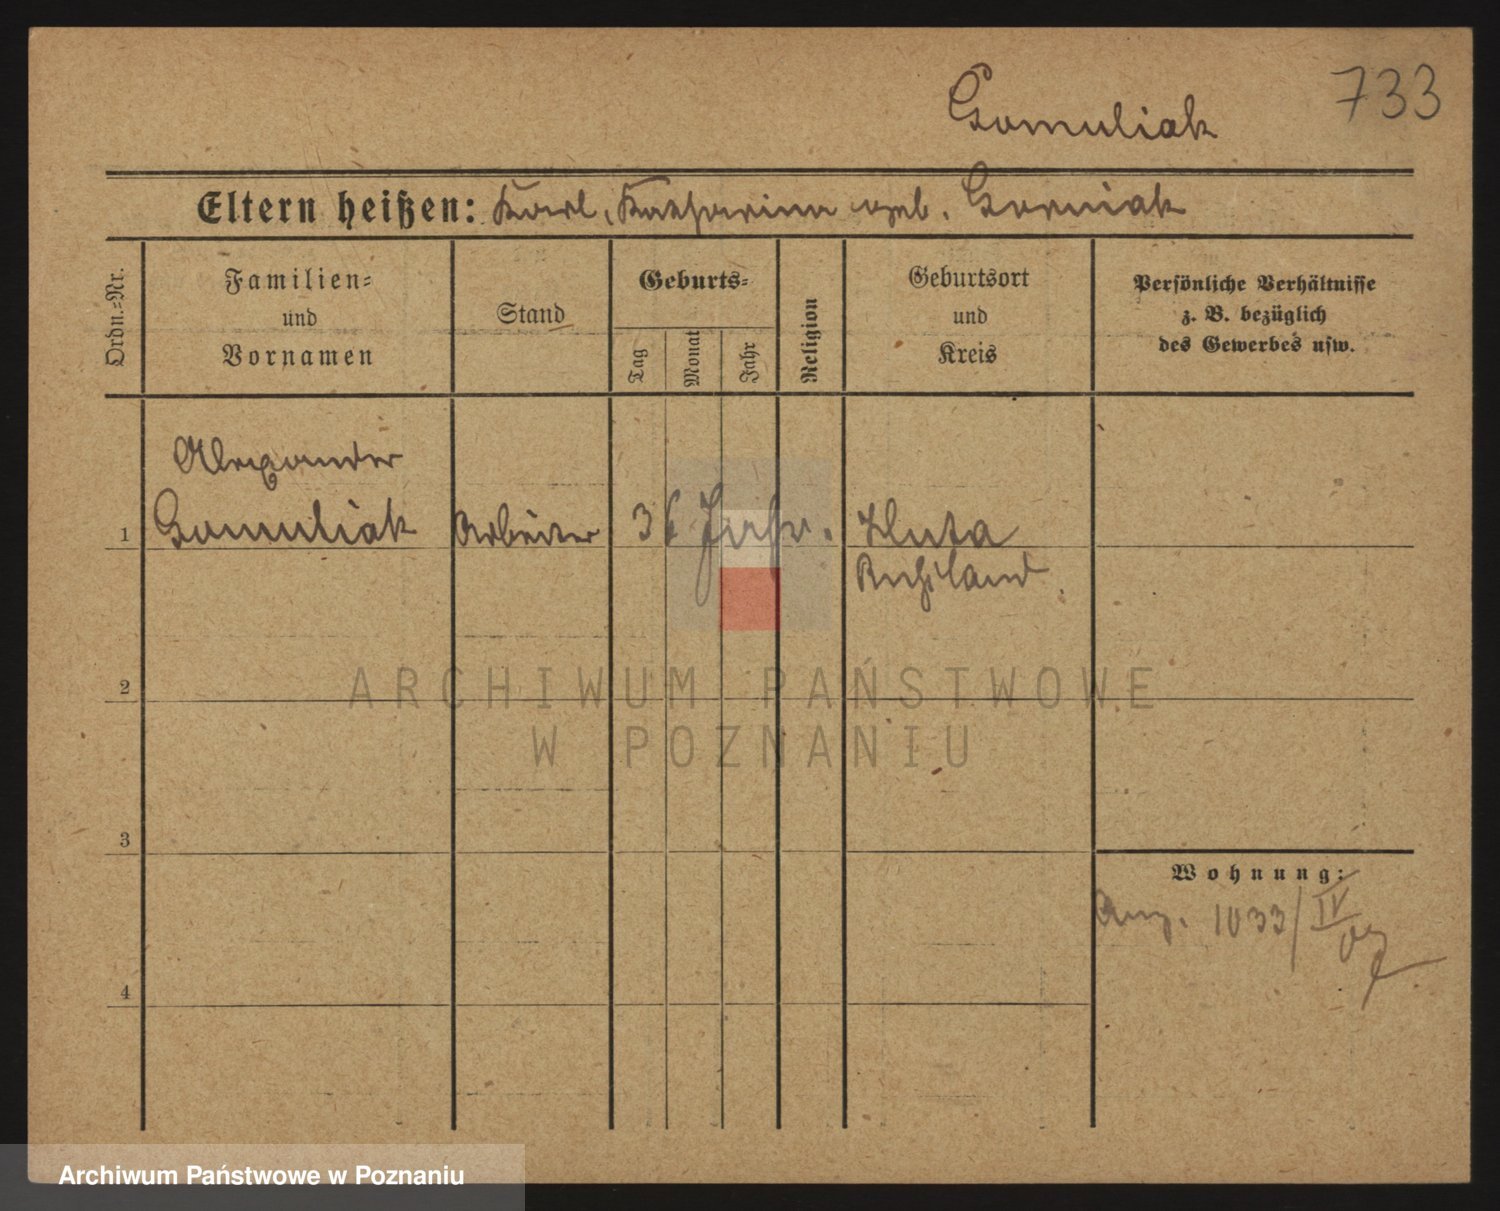 733
Gomuliak
Eltern heißen: Karl, Katharina geb. Gorniak
Ordn.-Nr.
Familien- und Vornamen
Stand
Geburts-
Tag
Monat
Jahr
Religion
Geburtsort und Kreis
Persönliche Verhältnisse z. B. bezüglich des Gewerbes usw.
Alexander
1 Gomuliak Arbeiter 36 Jahr. Huta
Rußland
2
3
4
Wohnung:
Anz. 1033/IV
09
ARCHIWUM PAŃSTWOWE
W POZNANIU
Archiwum Państwowe w Poznaniu